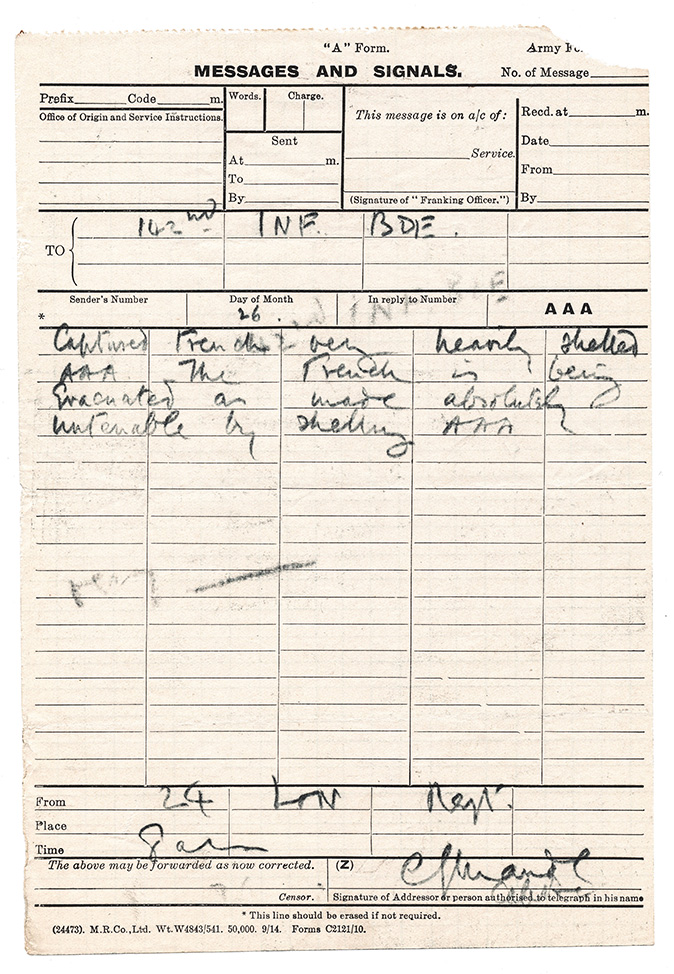 "A" Form. Army
MESSAGES AND SIGNALS. No. of Message
Prefix Code m. Words. Charge. This message is on a/c of: Recd. at m.
Office of Origin and Service Instructions. Sent Date
At m. Service. From
To
By (Signature of "Franking Officer.") By
TO 142nd INF. BDE.
Sender's Number Day of Month In reply to Number AAA
* 26.
Captured Trench very heavily shelled
AAA The Trench is being
Evacuated as made absolutely
untenable by shelling AAA
From 24 LON Regt.
Place
Time 8 am
The above may be forwarded as now corrected. (Z)
Censor. Signature of Addressor or person authorised to telegraph in his name
* This line should be erased if not required.
(24473). M.R.Co.,Ltd. Wt.W4843/541. 50,000. 9/14. Forms C2121/10.